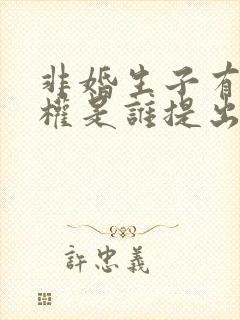 非婚生子有
權是誰提出
許忠義